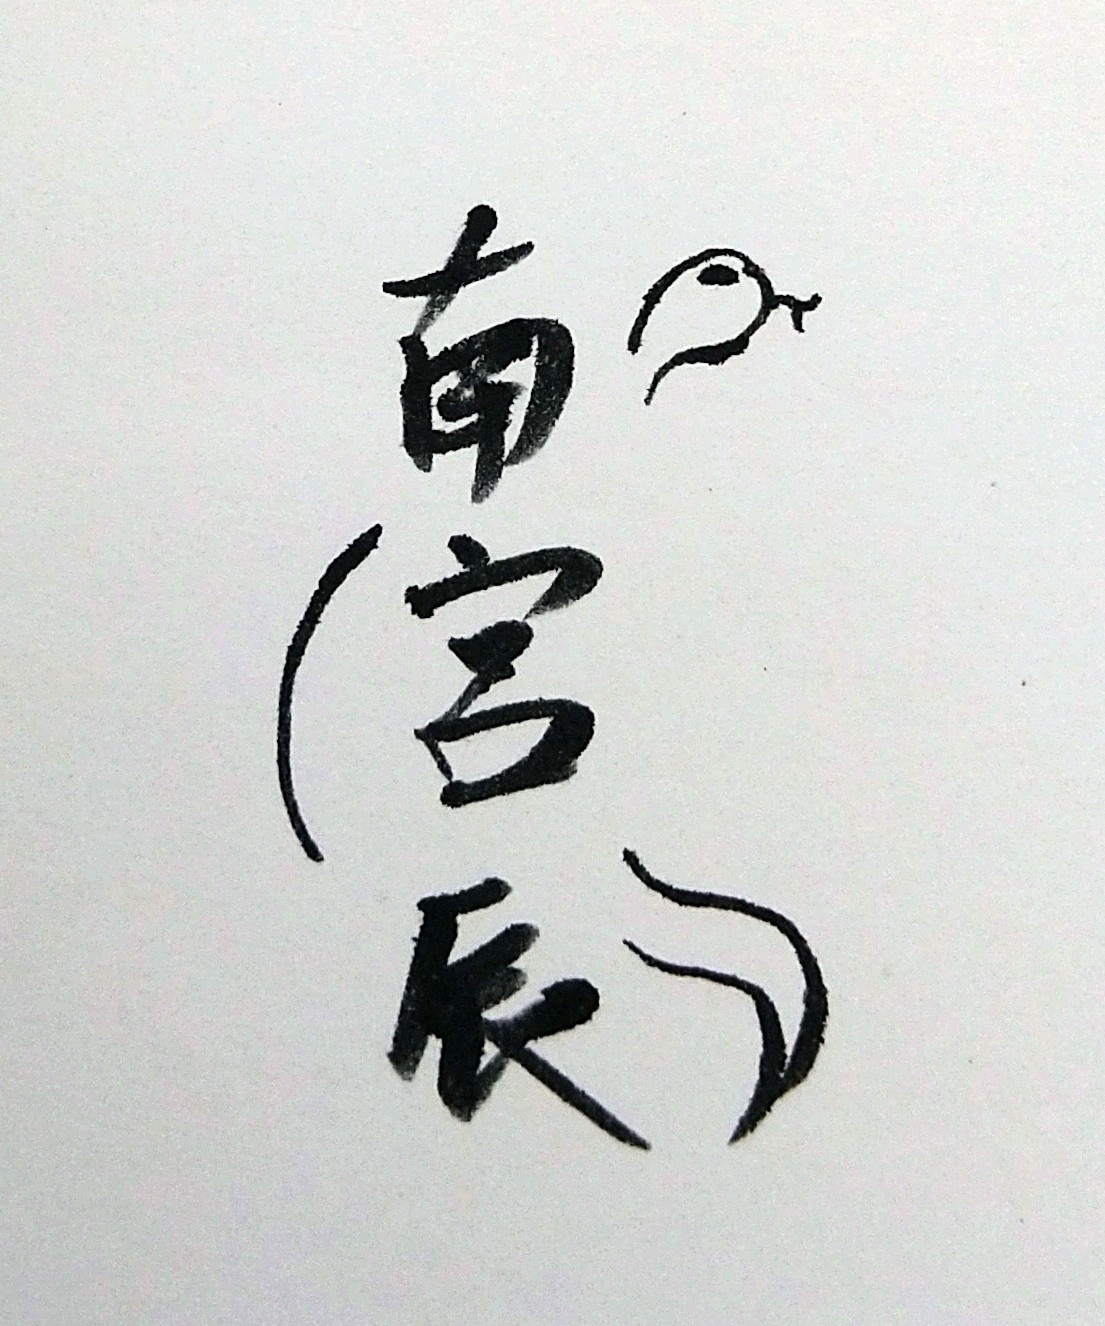 南宫辰